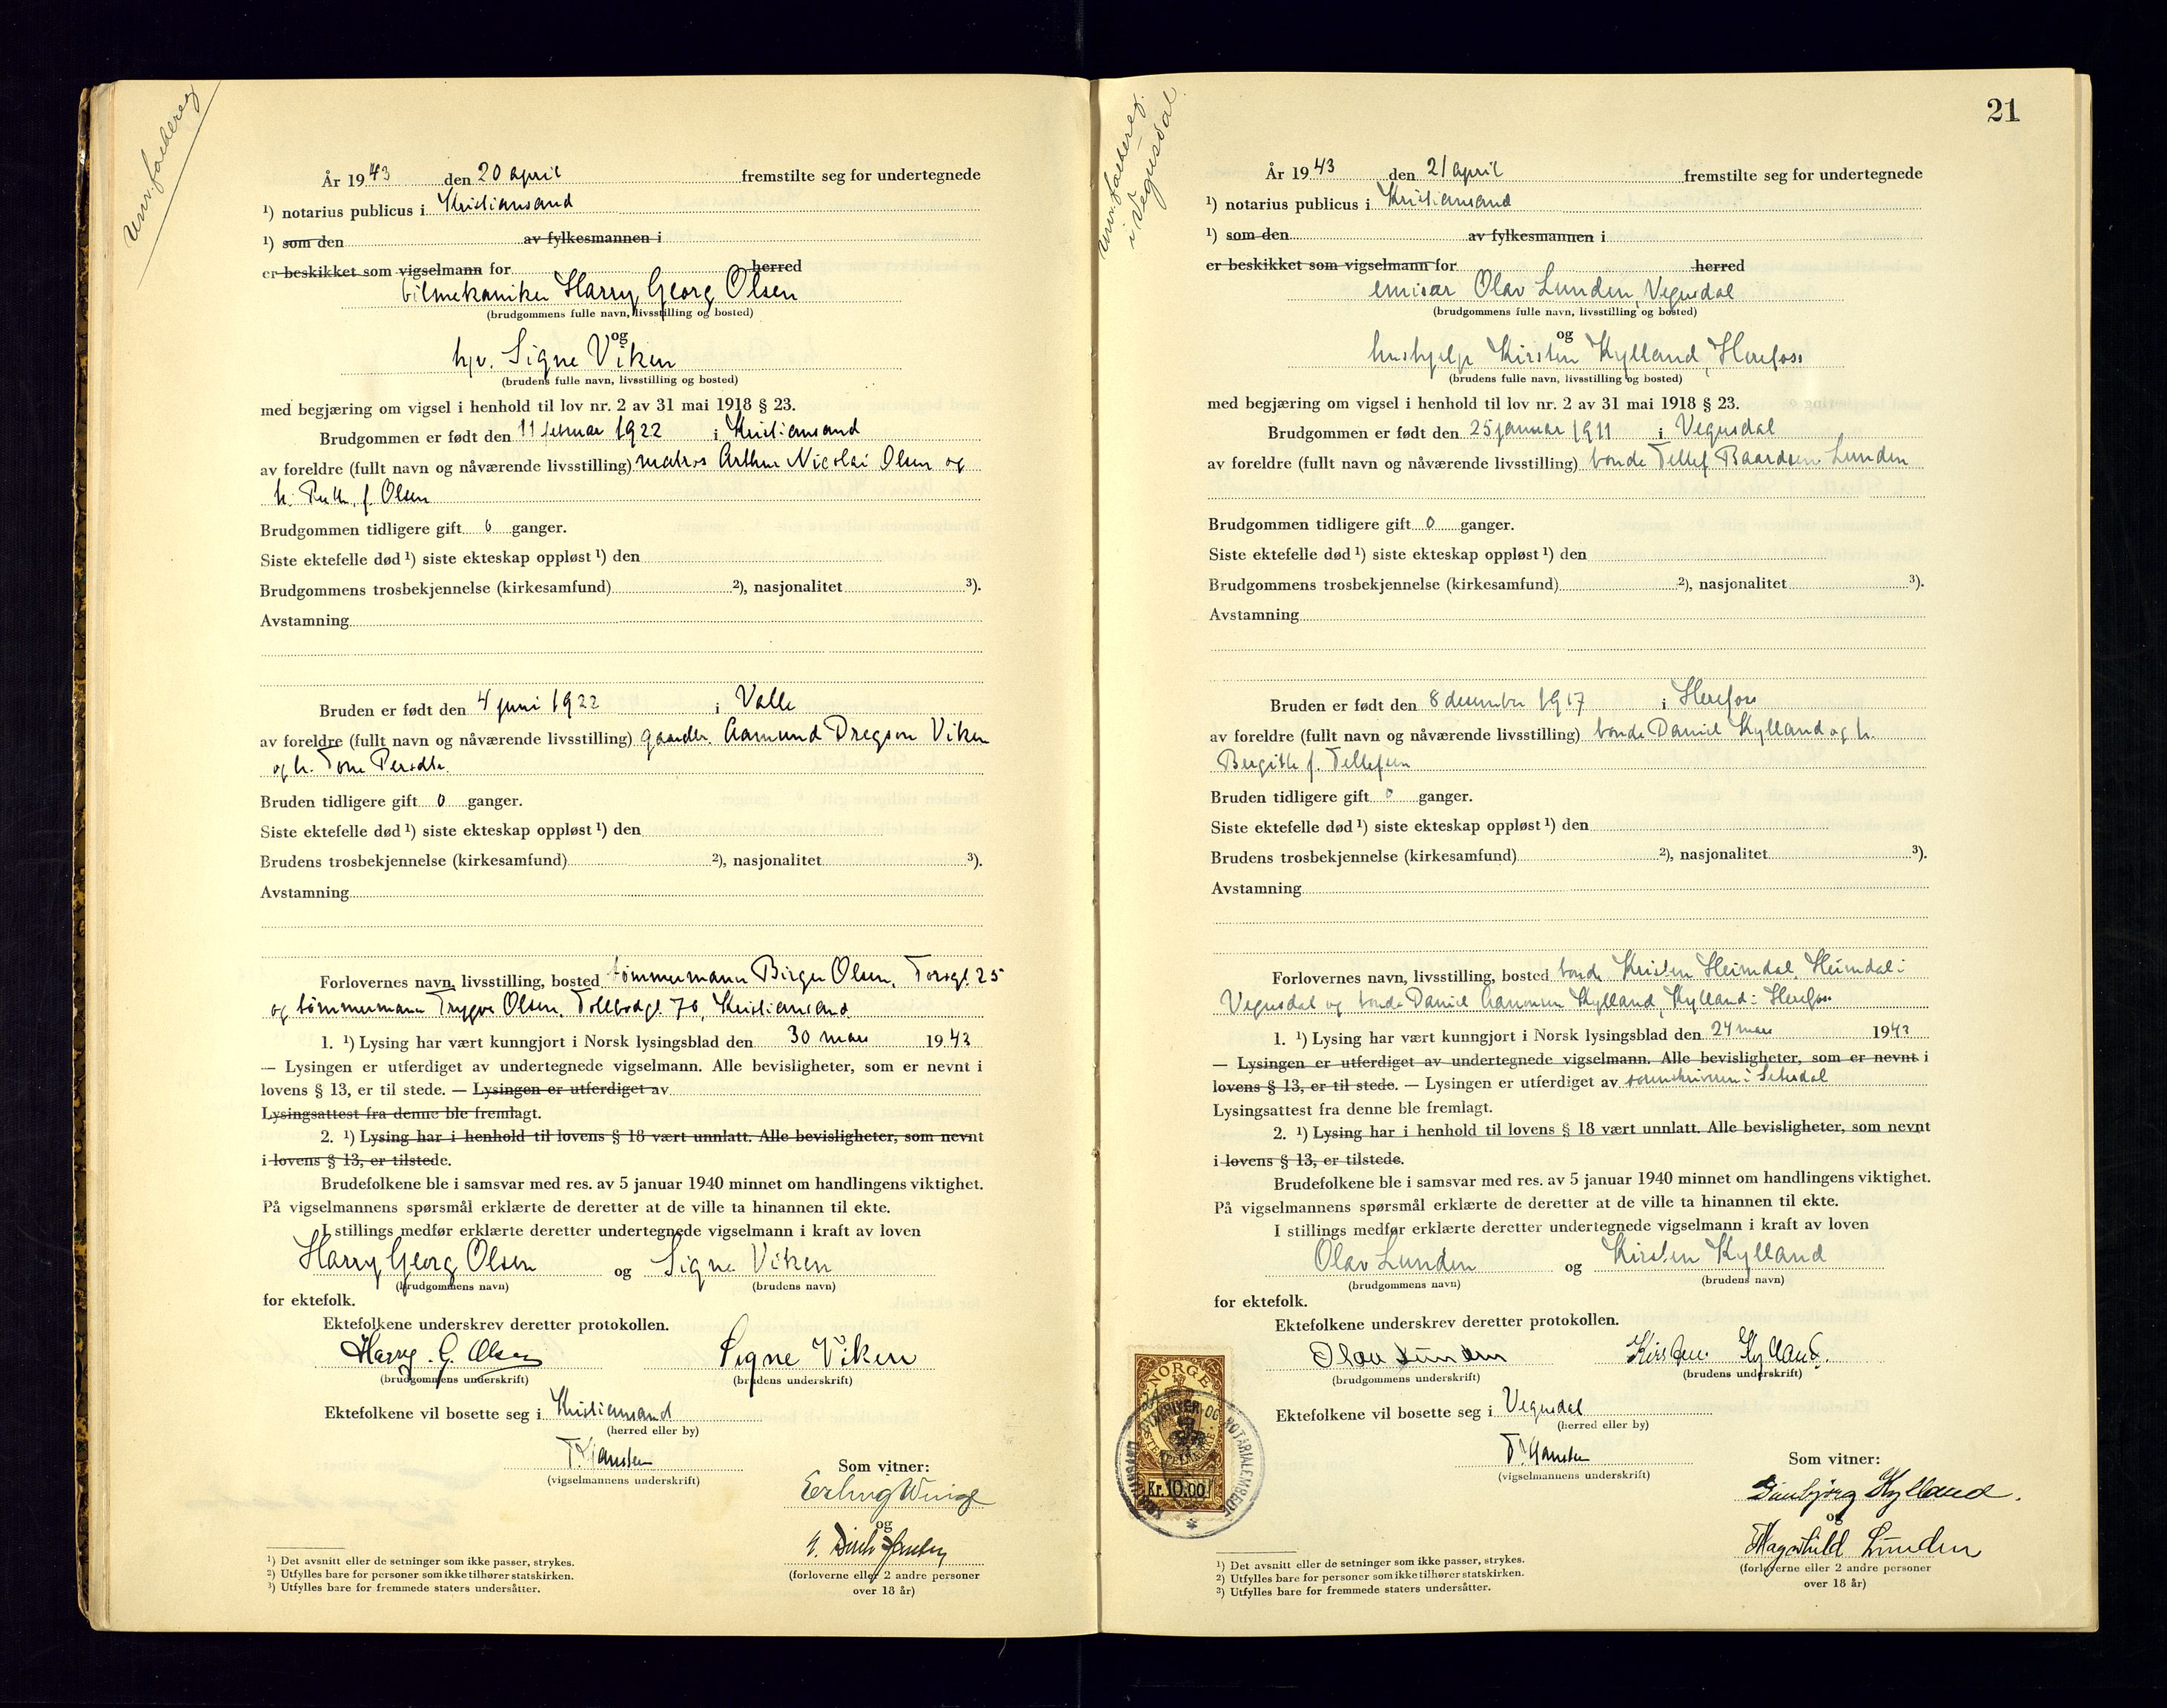 Unr. foedereg
År 1943 den 20 april fremstilte seg for undertegnede
¹) notarius publicus i Kristiansand
¹) som den av fylkesmannen i
er beskikket som vigselmann for herred
bilmekaniker Harry Georg Olsen
(brudgommens fulle navn, livsstilling og bosted)
og
hjv. Signe Viken
(brudens fulle navn, livsstilling og bosted)
med begjæring om vigsel i henhold til lov nr. 2 av 31 mai 1918 § 23.
Brudgommen er født den 11 februar 1922 i Kristiansand
av foreldre (fullt navn og nåværende livsstilling) matros Arthur Nicolai Olsen og
h. Ruth, f. Olsen
Brudgommen tidligere gift 0 ganger.
Siste ektefelle død ¹) siste ekteskap oppløst ¹) den
Brudgommens trosbekjennelse (kirkesamfund) ²), nasjonalitet ³).
Avstamning
Bruden er født den 4 juni 1922 i Valle
av foreldre (fullt navn og nåværende livsstilling) gaardbr. Aamund Dregson Viken
og h. Tone Persdtr.
Bruden tidligere gift 0 ganger.
Siste ektefelle død ¹) siste ekteskap oppløst ¹) den
Brudens trosbekjennelse (kirkesamfund) ²), nasjonalitet ³).
Avstamning
Forlovernes navn, livsstilling, bosted tømmermann Birger Olsen, Torvgt. 25
og tømmermann Trygve Olsen, Tollbodgt. 70, Kristiansand
1. ¹) Lysing har vært kunngjort i Norsk lysingsblad den 30 mars 1943
— Lysingen er utferdiget av undertegnede vigselmann. Alle bevisligheter, som er nevnt i
lovens § 13, er til stede. — Lysingen er utferdiget av
Lysingsattest fra denne ble fremlagt.
2. ¹) Lysing har i henhold til lovens § 18 vært unnlatt. Alle bevisligheter, som nevnt
i lovens § 13, er tilstede.
Brudefolkene ble i samsvar med res. av 5 januar 1940 minnet om handlingens viktighet.
På vigselmannens spørsmål erklærte de deretter at de ville ta hinannen til ekte.
I stillings medfør erklærte deretter undertegnede vigselmann i kraft av loven
Harry Georg Olsen og Signe Viken
(brudgommens navn) (brudens navn)
for ektefolk.
Ektefolkene underskrev deretter protokollen.
Harry. G. Olsen Signe Viken
(brudgommens underskrift) (brudens underskrift)
Ektefolkene vil bosette seg i Kristiansand
(herred eller by)
(vigselmannens underskrift)
Som vitner:
Erling Winge
og
(forloverne eller 2 andre personer
over 18 år)
¹) Det avsnitt eller de setninger som ikke passer, strykes.
²) Utfylles bare for personer som ikke tilhører statskirken.
³) Utfylles bare for fremmede staters undersåtter.
21
Unr. foedereg.
i Vegusdal.
År 1943 den 21 april fremstilte seg for undertegnede
¹) notarius publicus i Kristiansand
¹) som den av fylkesmannen i
er beskikket som vigselmann for herred
emisær Olav Lunden, Vegusdal
(brudgommens fulle navn, livsstilling og bosted)
og
hushjelp Kirsten Kylland, Herefoss
(brudens fulle navn, livsstilling og bosted)
med begjæring om vigsel i henhold til lov nr. 2 av 31 mai 1918 § 23.
Brudgommen er født den 25 januar 1911 i Vegusdal
av foreldre (fullt navn og nåværende livsstilling) bonde Tellef Baardsen Lunden
Brudgommen tidligere gift 0 ganger.
Siste ektefelle død ¹) siste ekteskap oppløst ¹) den
Brudgommens trosbekjennelse (kirkesamfund) ²), nasjonalitet ³).
Avstamning
Bruden er født den 8 desember 1917 i Herefoss
av foreldre (fullt navn og nåværende livsstilling) bonde Daniel Kylland og h.
Bergitte f. Tellefsen
Bruden tidligere gift 0 ganger.
Siste ektefelle død ¹) siste ekteskap oppløst ¹) den
Brudens trosbekjennelse (kirkesamfund) ²), nasjonalitet ³).
Avstamning
Forlovernes navn, livsstilling, bosted bonde Kristen Heimdal, Heimdal i
Vegusdal og bonde Daniel Aanonsen Kylland, Kylland i Herefoss
1. ¹) Lysing har vært kunngjort i Norsk lysingsblad den 24 mars 1943
— Lysingen er utferdiget av undertegnede vigselmann. Alle bevisligheter, som er nevnt i
lovens § 13, er til stede. — Lysingen er utferdiget av sorenskriveren i Setesdal
Lysingsattest fra denne ble fremlagt.
2. ¹) Lysing har i henhold til lovens § 18 vært unnlatt. Alle bevisligheter, som nevnt
i lovens § 13, er tilstede.
Brudefolkene ble i samsvar med res. av 5 januar 1940 minnet om handlingens viktighet.
På vigselmannens spørsmål erklærte de deretter at de ville ta hinannen til ekte.
I stillings medfør erklærte deretter undertegnede vigselmann i kraft av loven
Olav Lunden og Kirsten Kylland
(brudgommens navn) (brudens navn)
for ektefolk.
Ektefolkene underskrev deretter protokollen.
Olav Lunden Kirsten Kylland.
(brudgommens underskrift) (brudens underskrift)
Ektefolkene vil bosette seg i Vegusdal
(herred eller by)
(vigselmannens underskrift)
Som vitner:
Gunbjörg Kylland.
og
Magnhild Lunden
(forloverne eller 2 andre personer
over 18 år)
NORGE
Kr. 10.00
¹) Det avsnitt eller de setninger som ikke passer, strykes.
²) Utfylles bare for personer som ikke tilhører statskirken.
³) Utfylles bare for fremmede staters undersåtter.